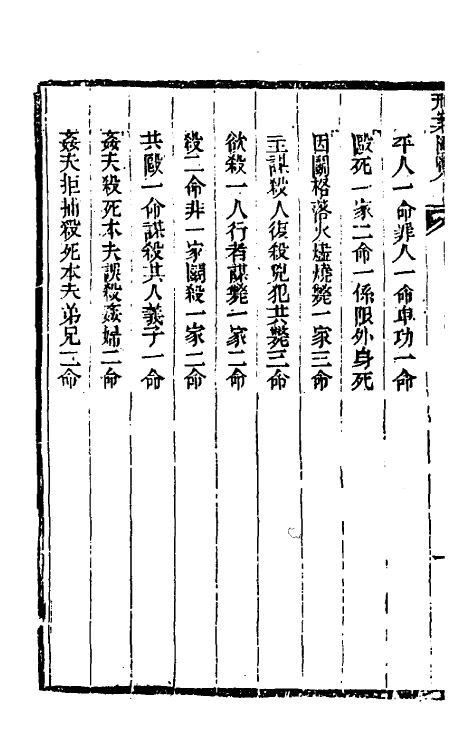 刑案匯覽
平人一命罪人一命卑功一命
毆死一家二命一係限外身死
因鬭格落火爐燒斃一家三命
主謀殺人復殺兇犯共斃三命
欲殺一人行者謀斃一家二命
殺二命非一家鬭殺一家二命
共毆一命謀殺其人義子一命
姦夫殺死本夫誤殺姦婦二命
姦夫拒捕殺死本夫弟兄二命
一